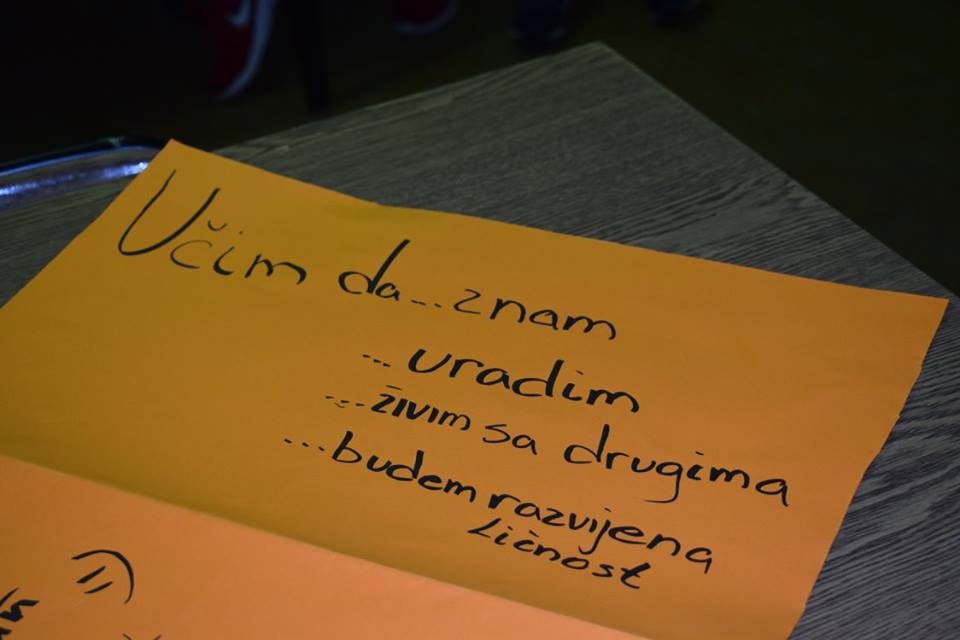 Učim da... znam
... uradim
... živim sa drugima
... budem razvijena
ličnost